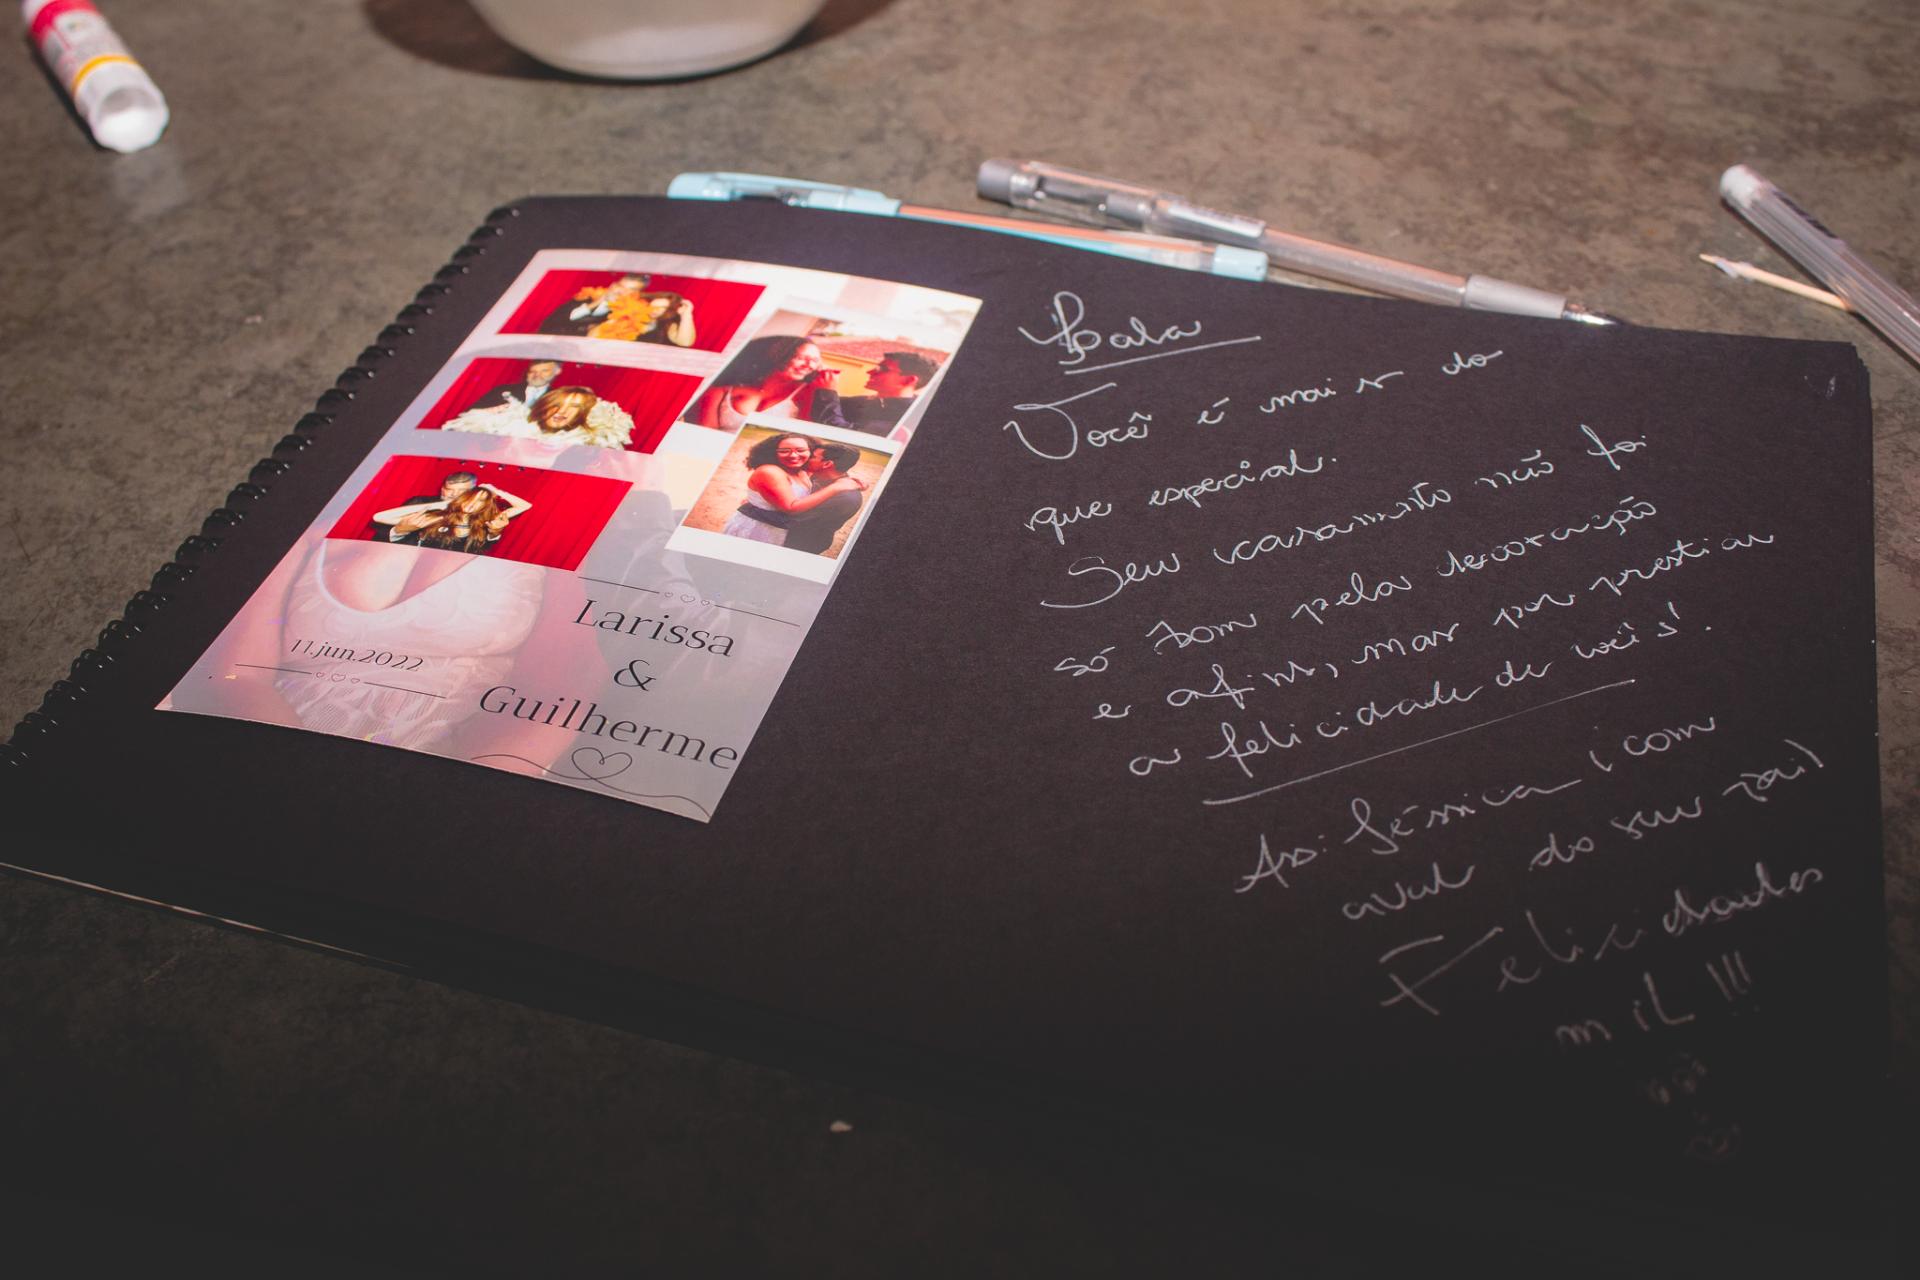 Larissa
&
Guilherme
11.jun.2022
Lala
Você é mais do
que especial.
Seu casamento não foi
só bom pela decoração
e afins, mas por prestiar
a felicidade de vocês!
Ass: Jéssica (com
aval do seu pai)
Felicidades
mil !!!